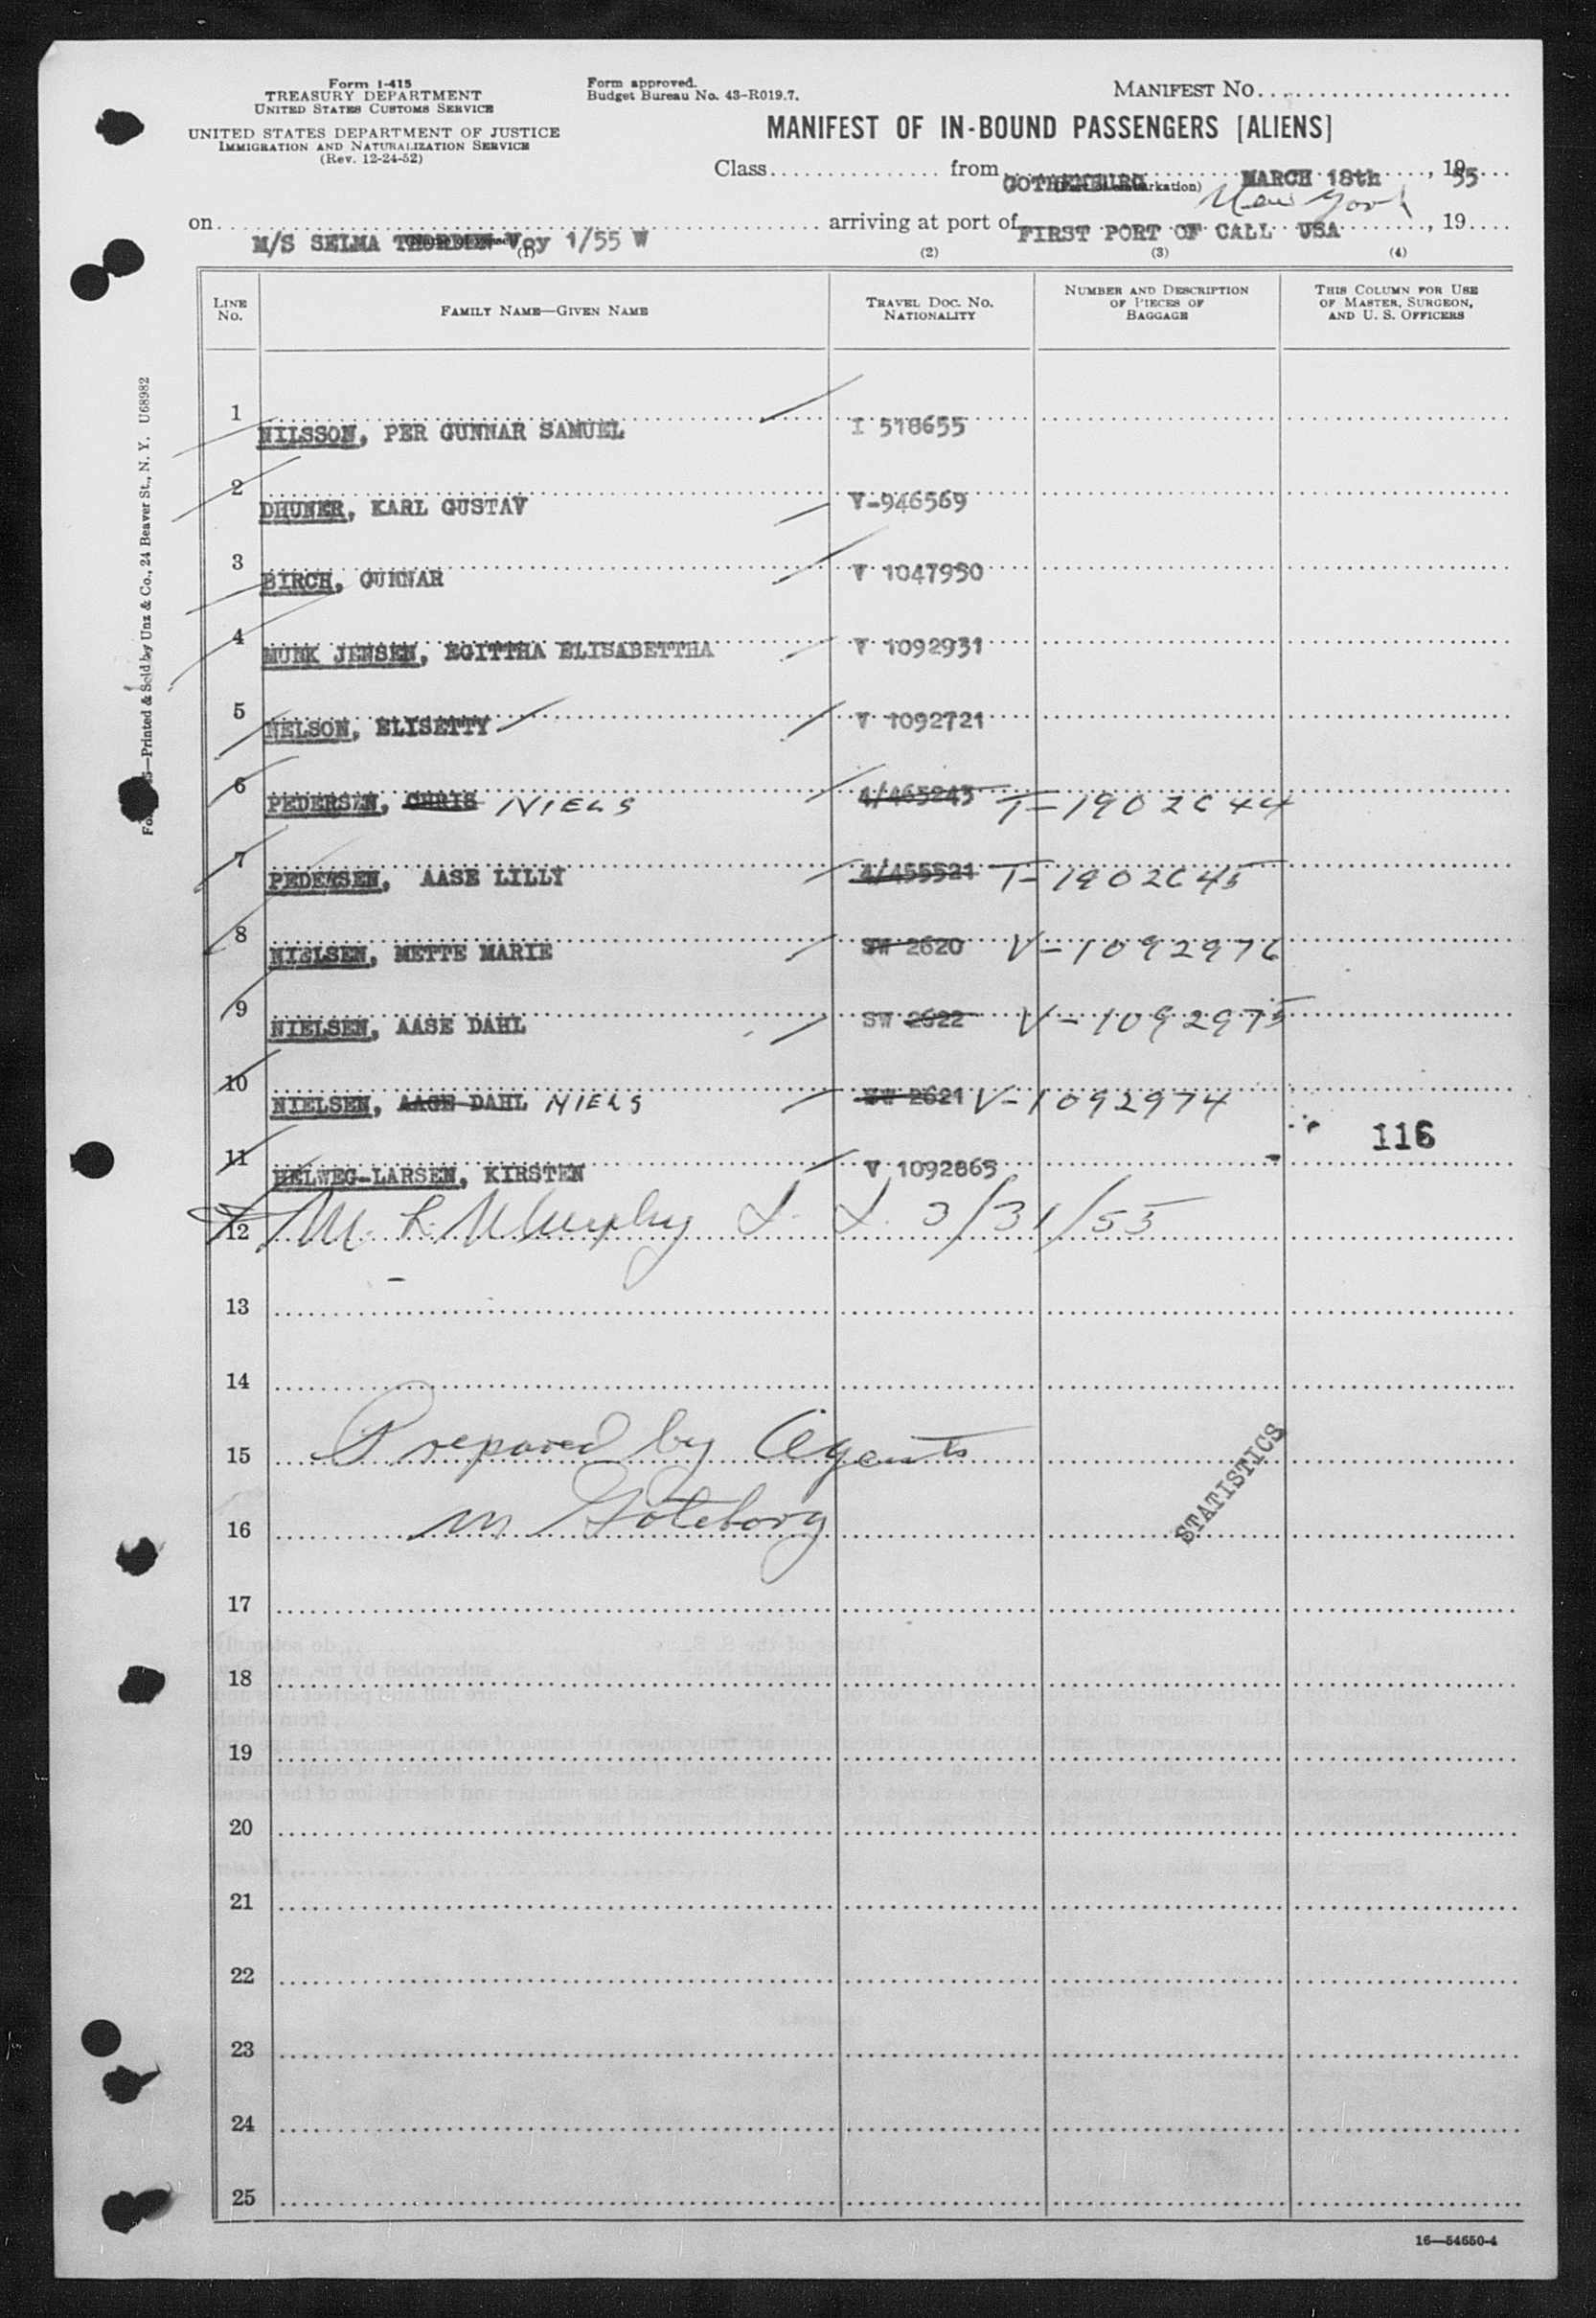 Form I-415
TREASURY DEPARTMENT
UNITED STATES CUSTOMS SERVICE
UNITED STATES DEPARTMENT OF JUSTICE
IMMIGRATION AND NATURALIZATION SERVICE
(Rev. 12-24-52)
Form approved.
Budget Bureau No. 43-R019.7.
MANIFEST NO.
MANIFEST OF IN-BOUND PASSENGERS [ALIENS]
Class from GOTHENBURG MARCH 18th, 1955
New York
on M/S SELMA THORDEN Voy 1/55 W arriving at port of FIRST PORT OF CALL USA, 19
(1) (2) (3) (4)
LINE NO. FAMILY NAME—GIVEN NAME TRAVEL DOC. NO. NATIONALITY NUMBER AND DESCRIPTION OF PIECES OF BAGGAGE THIS COLUMN FOR USE OF MASTER, SURGEON, AND U. S. OFFICERS
1 NILSSON, PER GUNNAR SAMUEL I 518655
2 DHUNER, KARL GUSTAV V-946569
3 BIRCH, GUNNAR V 1047950
4 MUNK JENSEN, EGITTHA ELISABETTHA V 1092931
5 NELSON, ELISETTY V 1092721
6 PEDERSEN, CHRIS NIELS 4/465243 T-1902644
7 PEDERSEN, AASE LILLY 4/455521 T-1902645
8 NIELSEN, METTE MARIE SW 2620 V-1092976
9 NIELSEN, AASE DAHL SW 2622 V-1092975
10 NIELSEN, AAGE DAHL NIELS SW 2621 V-1092974
116
11 HELWEG-LARSEN, KIRSTEN V 1092865
12 M. L. Murphy I. I. 3/31/55
13
14
15 Prepared by Agents
16 in Göteborg
STATISTICS
17
18
19
20
21
22
23
24
25
16—54650-4
Printed & Sold by Unz & Co., 24 Beaver St., N. Y. U68982